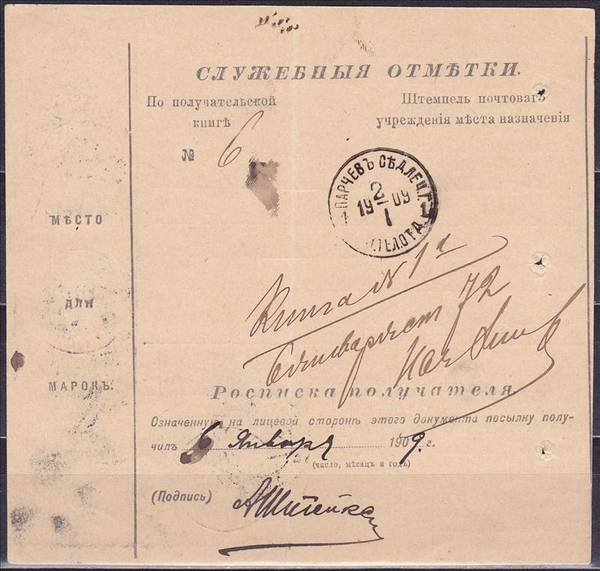 СЛУЖЕБНЫЯ ОТМѢТКИ.
По получательской
книгѣ
№ 6
Штемпель почтоваго
учрежденія мѣста назначенія
ПАРЧЕВЪ СѢДЛЕЦ. Г.
2
1909
I
1 1
.ТЕЛ.ОТД.
МѢСТО
ДЛЯ
МАРОКЪ.
Книга № 1а
72
Росписка получателя
Означенную на лицевой сторонѣ этого документа посылку полу-
чилъ 6 Января 1909 г.
(число, мѣсяцъ и годъ)
(Подпись)